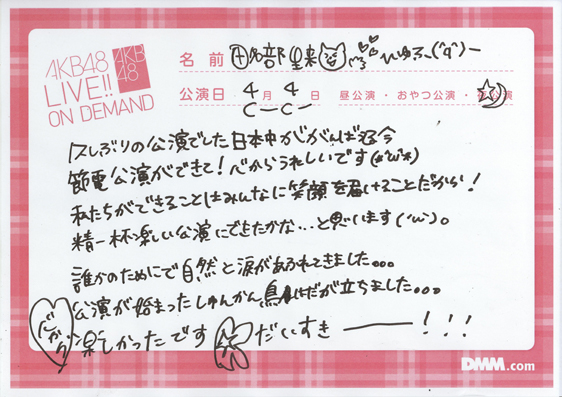 AKB48
LIVE!!
ON DEMAND
AKB
48
名前 田名部 生来
公演日 4月 4日 昼公演・おやつ公演・公演
久しぶりの公演でした日本中ががんばる今
節電公演ができて！心からうれしいです
私たちができることはみんなに笑顔を届けることだから！
精一杯楽しい公演にできたかな…と思います(^ω^)。
誰かのためにで自然と涙があふれてきました…
公演が始まったしゅんかん鳥はだが立ちました…
楽しかったです だいすきー！！！
DMM.com